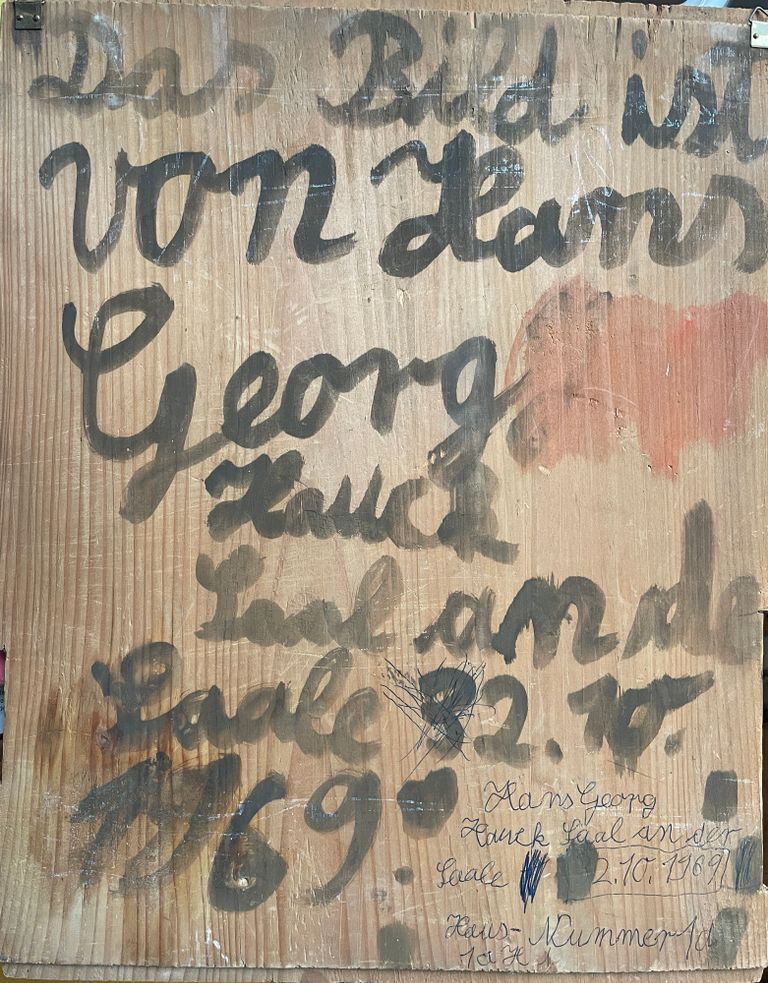 Das Bild ist
von Hans
Georg
Hauck
Saal an de
Saale 2.10.
1969.
Hans Georg
Hauck Saal an der
Saale 2.10.1969
Haus-Nummer 1d